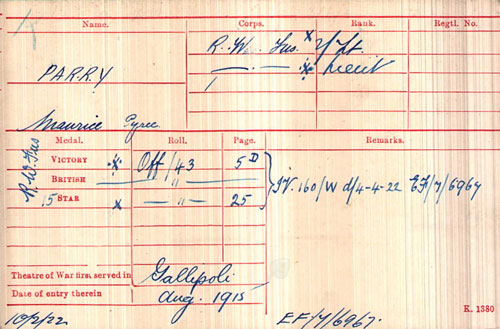 Name. Corps. Rank. Regtl. No.
R. W. Fus. x 2/Lt.
PARRY — " — * Lieut
Maurice
Medal. Roll. Page. Remarks.
R.W.Fus
VICTORY * Off/43 5D
BRITISH — " —
15 STAR x — " — 25
IV. 160/W d/4-4-22 EF/7/6967
Theatre of War first served in Gallipoli
Date of entry therein Aug. 1915
K. 1380
10/2/22 EF/7/6967.